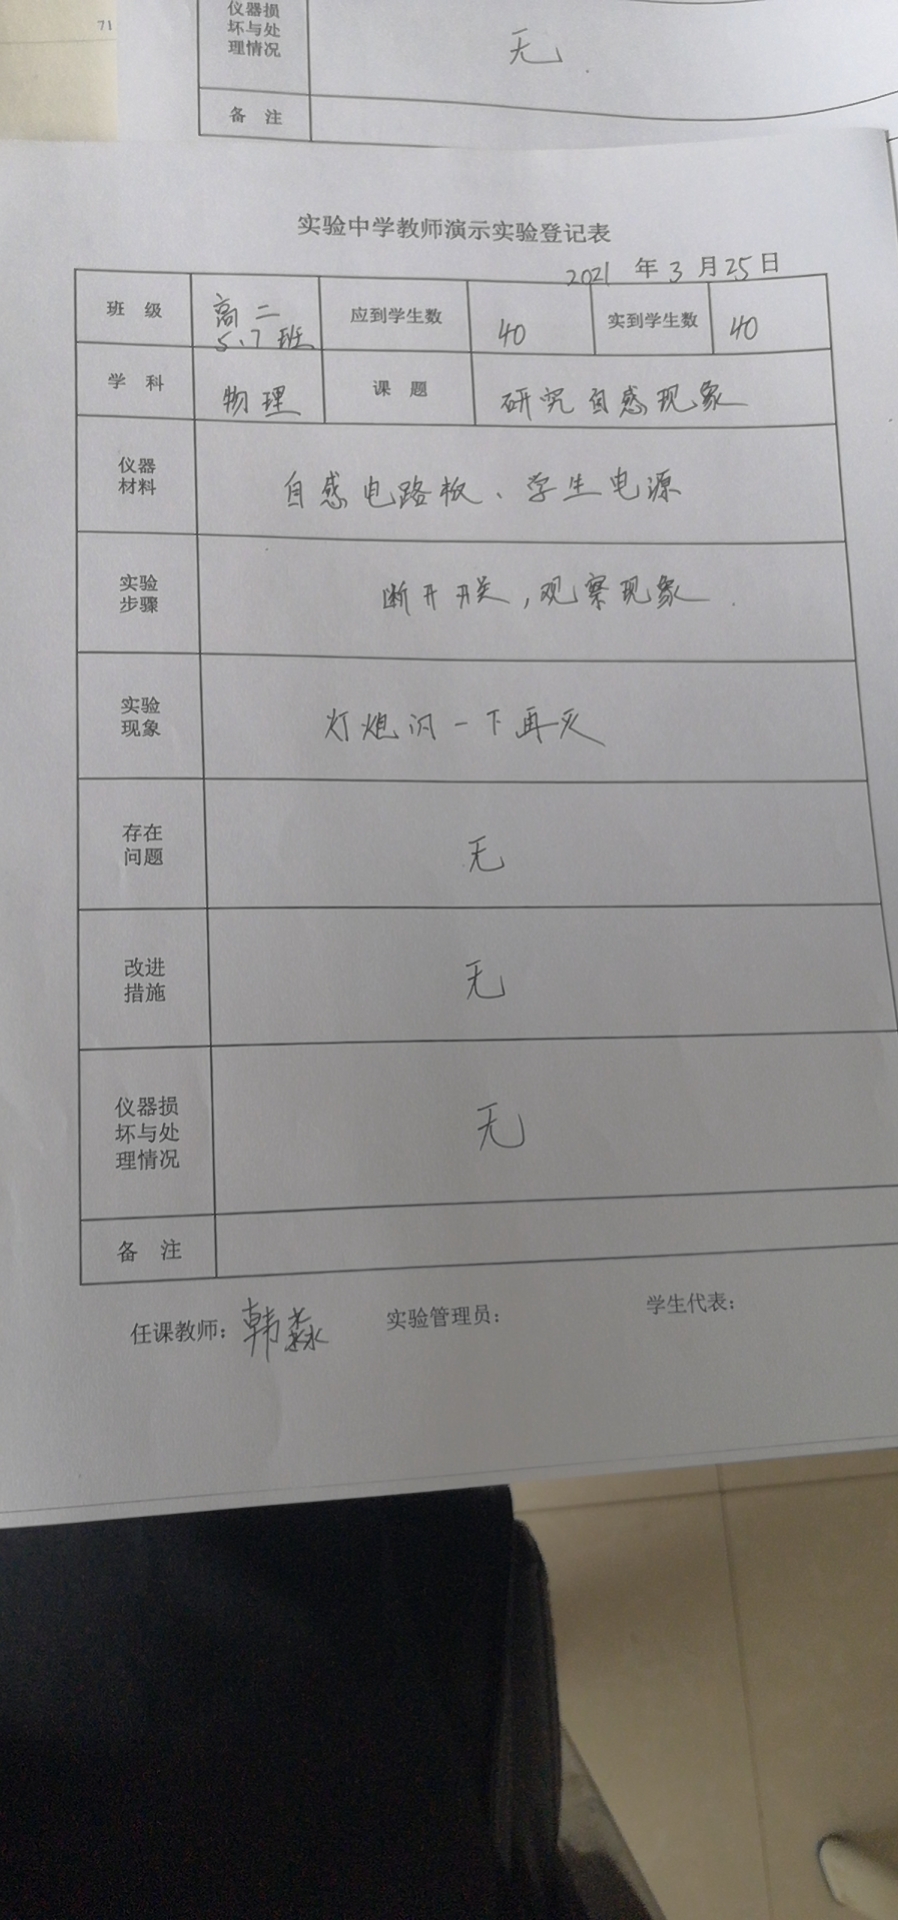 71
仪器损
坏与处
理情况
无
备 注
实验中学教师演示实验登记表
2021 年 3 月 25 日
班 级
高二
5、7班
应到学生数
40
实到学生数
40
学 科
物理
课 题
研究自感现象
仪器
材料
自感电路板、学生电源
实验
步骤
断开开关，观察现象.
实验
现象
灯熄闪一下再灭
存在
问题
无
改进
措施
无
仪器损
坏与处
理情况
无
备 注
任课教师：韩淼
实验管理员：
学生代表：